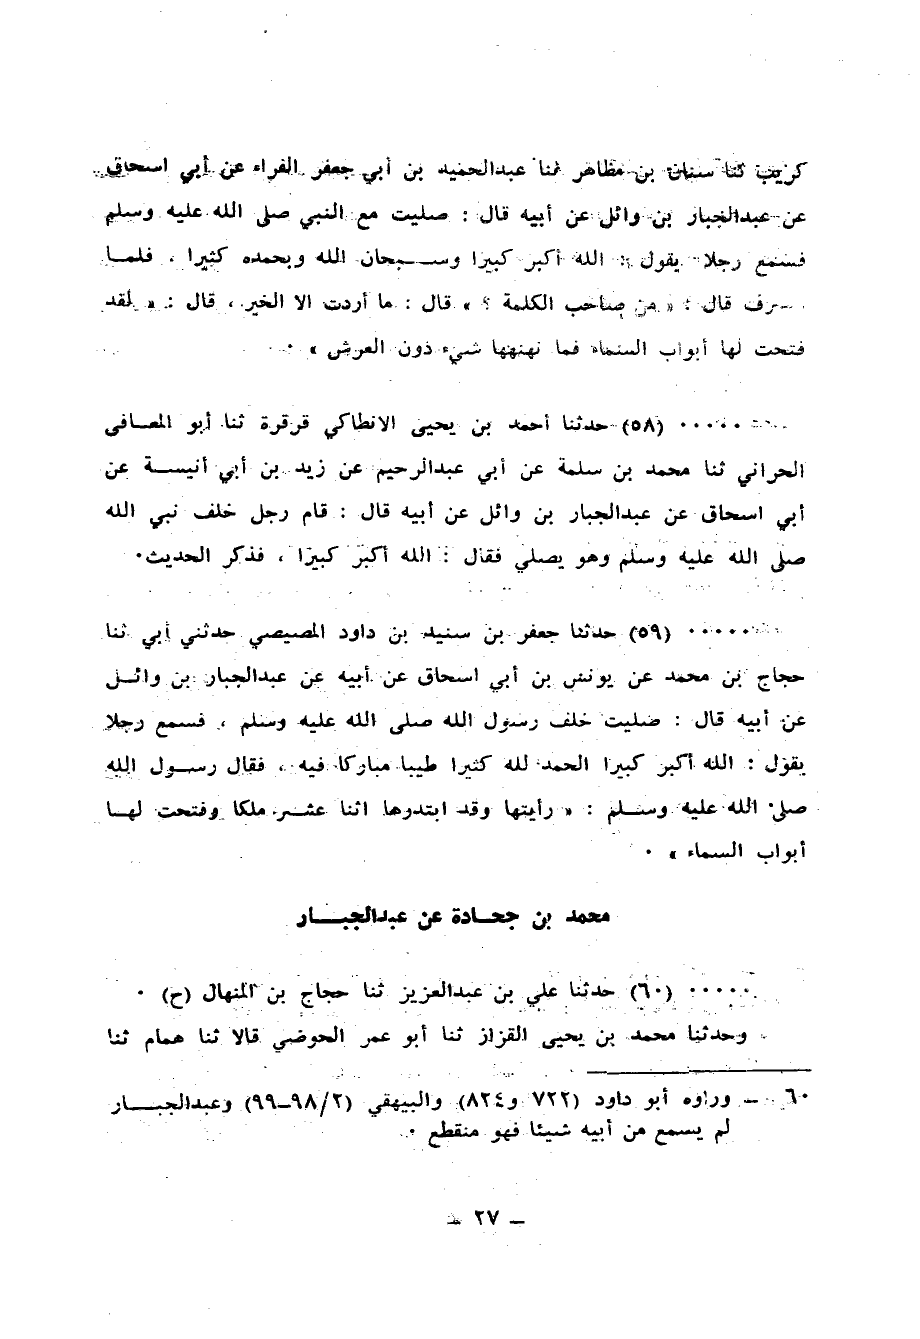 كريب ثنا سنان بن مظاهر ثنا عبدالحميد بن أبي جعفر الفراء عن أبي اسحاق
عن عبدالجبار بن وائل عن أبيه قال : صليت مع النبي صلى الله عليه وسلم
فسمع رجلا يقول : الله أكبر كبيرا وســـبحان الله وبحمده كثيرا ، فلمـا
ـرف قال : « من صاحب الكلمة ؟ » قال : ما أردت الا الخير ، قال : « لقد
فتحت لها أبواب السماء فما نهنهها شيء دون العرش » ٠
٠٠٠٠٠ (٥٨) حدثنا أحمد بن يحيى الانطاكي قرقرة ثنا أبو المعـافى
الحراني ثنا محمد بن سلمة عن أبي عبدالرحيم عن زيد بن أبي أنيســة عن
أبي اسحاق عن عبدالجبار بن وائل عن أبيه قال : قام رجل خلف نبي الله
صلى الله عليه وسلم وهو يصلي فقال : الله أكبر كبيرا ، فذكر الحديث٠
٠٠٠٠٠ (٥٩) حدثنا جعفر بن سنيد بن داود المصيصي حدثني أبي ثنا
حجاج بن محمد عن يونس بن أبي اسحاق عن أبيه عن عبدالجبار بن وائـل
عن أبيه قال : صليت خلف رسول الله صلى الله عليه وسلم ، فسمع رجلا
يقول : الله أكبر كبيرا الحمد لله كثيرا طيبا مباركا فيه ، فقال رسـول الله
صلى الله عليه وســلم : « رأيتها وقد ابتدرها اثنا عشـر ملكا وفتحت لهـا
أبواب السماء » ٠
محمد بن جحـادة عن عبدالجبــار
٠٠٠٠٠ (٦٠) حدثنا علي بن عبدالعزيز ثنا حجاج بن المنهال (ح) ٠
وحدثنا محمد بن يحيى القزاز ثنا أبو عمر الحوضي قالا ثنا همام ثنا
٦٠ ـ ورواه أبو داود (٧٢٢ و٨٢٤) والبيهقي (٩٨/٢ـ٩٩) وعبدالجبــار
لم يسمع من أبيه شيئا فهو منقطع ٠
ـ ٢٧ ـ